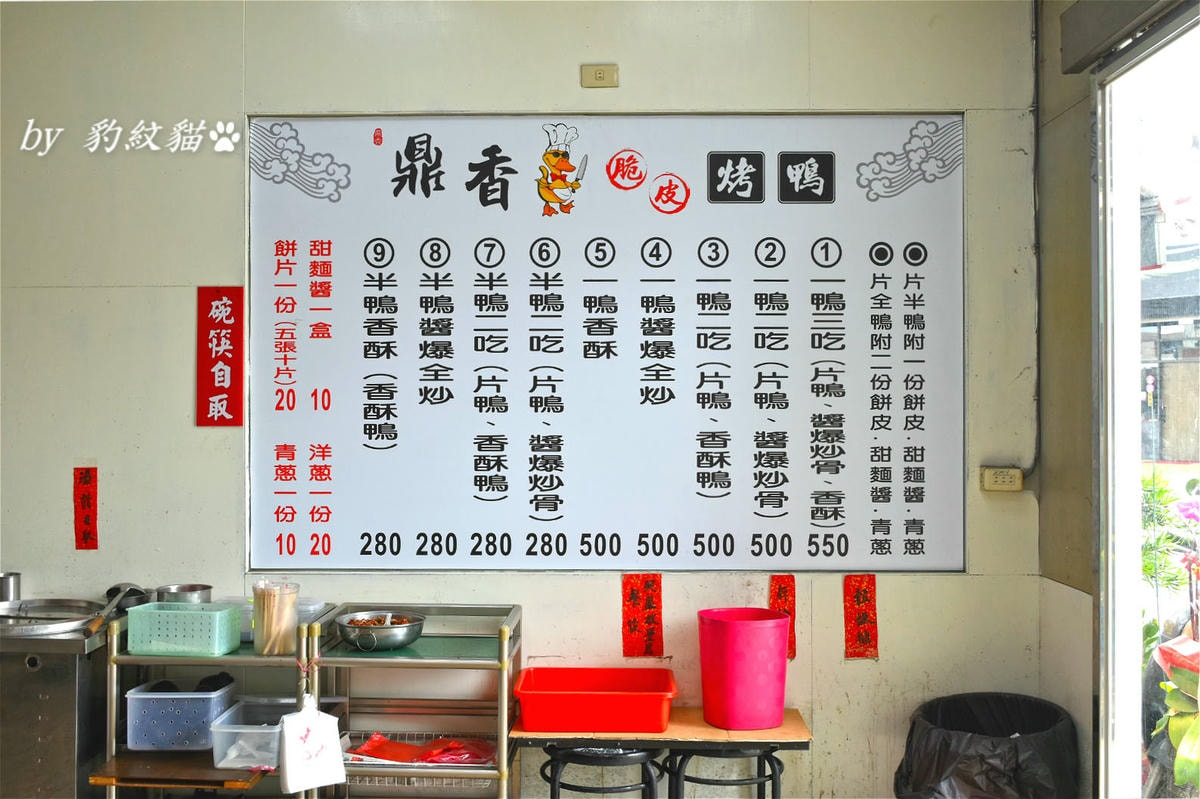 by 豹紋貓
鼎香
脆皮
烤鴨
片半鴨附一份餅皮·甜麵醬·青蔥
片全鴨附二份餅皮·甜麵醬·青蔥
①一鴨三吃(片鴨、醬爆炒骨、香酥) 550
②一鴨二吃(片鴨、醬爆炒骨) 500
③一鴨二吃(片鴨、香酥鴨) 500
④一鴨醬爆全炒 500
⑤一鴨香酥 500
⑥半鴨二吃(片鴨、醬爆炒骨) 280
⑦半鴨二吃(片鴨、香酥鴨) 280
⑧半鴨醬爆全炒 280
⑨半鴨香酥(香酥鴨) 280
甜麵醬一盒 10
洋蔥一份 20
餅片一份(五張十片) 20
青蔥一份 10
碗筷自取